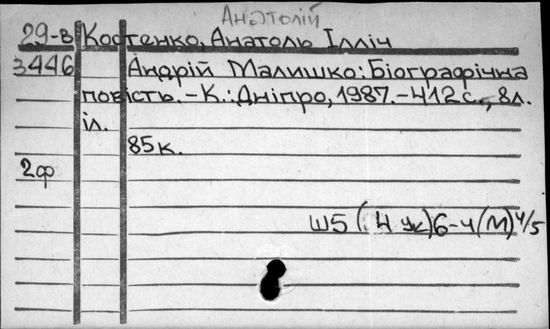 Анатолій
29-в Костенко, Анатоль Ілліч
3446 Андрій Малишко: Біографічна
повість. – К.: Дніпро, 1987. – 412 с., 8 л.
іл.
85к.
2ф
Ш5(4 Ук)6-4(М)4/5